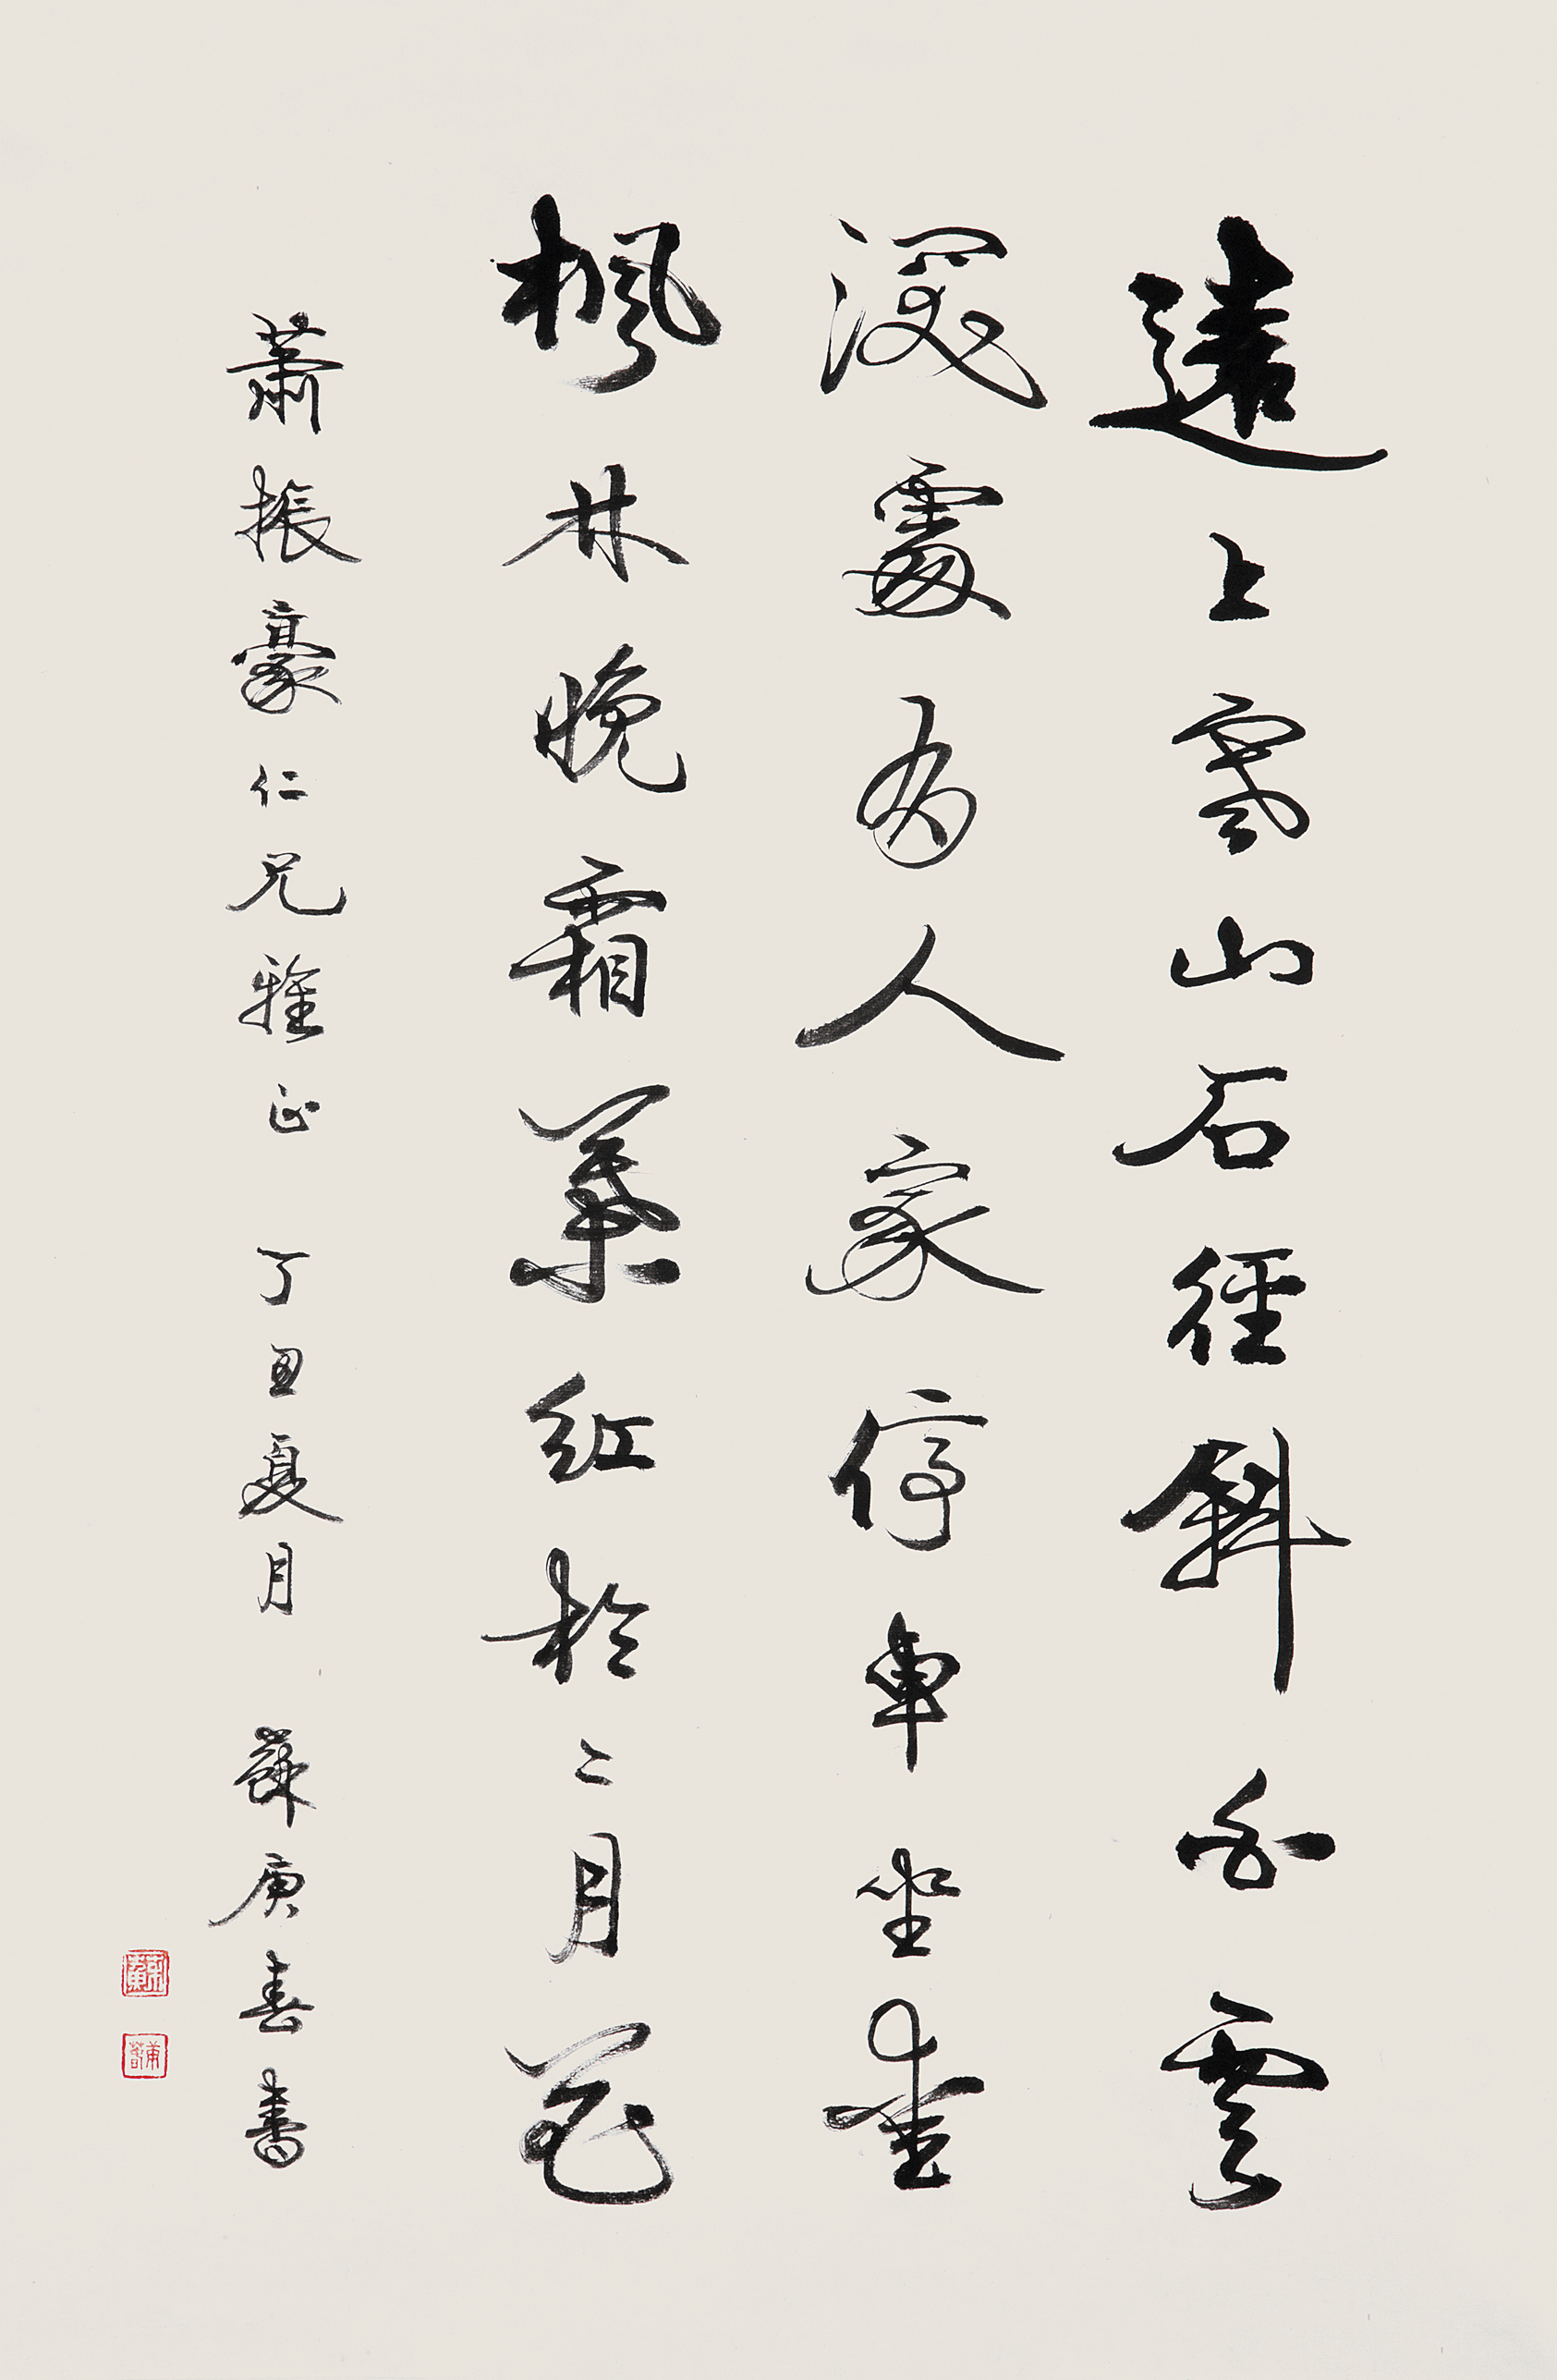 遠上寒山石徑斜白雲
深處有人家停車坐愛
楓林晚霜葉紅於二月花
蕭振豪仁兄雅正 丁丑夏月 蘇庚春書